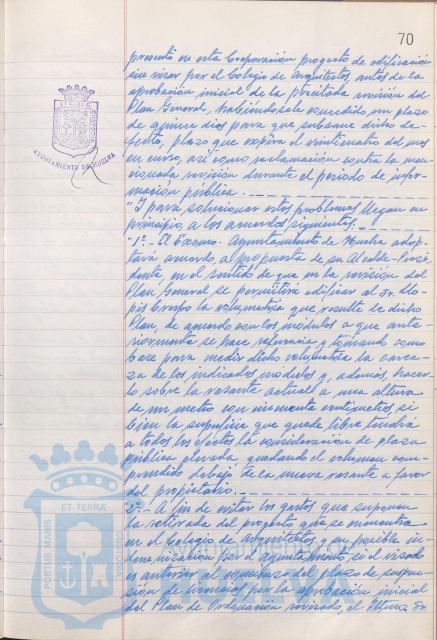 70
presentó en esta Corporación proyecto de edificación
sin visar por el Colegio de Arquitectos, antes de la
aprobación inicial de la precitada revisión del
Plan General, habiéndosele concedido un plazo
de quince días para que subsane dicho de-
fecto, plazo que expira el veinticuatro del mes
en curso, así como reclamación contra la men-
cionada revisión durante el periodo de infor-
mación pública.
"Y para solucionar estos problemas llegan en
principio, a los acuerdos siguientes.
"1º.- El Excmo. Ayuntamiento de Huelva adop-
tará acuerdo, a propuesta de su Alcalde-Presi-
dente, en el sentido de que en la revisión del
Plan General se permitirá edificar al Sr. Llo-
pis Crespo la volumetría que resulte de dicho
Plan, de acuerdo con los módulos a que ante-
riormente se hace referencia y tomando como
base para medir dicha volumetría la
de los indicados módulos y, además, hacer-
lo sobre la rasante actual a una altura
de un metro con cincuenta centímetros, si
bien la superficie que quede libre tendrá
a todos los efectos la consideración de plaza
pública elevada quedando el volumen com-
prendido debajo de la nueva rasante a favor
del propietario.
2º.- A fin de evitar los gastos que suponen
la retirada del proyecto que se encuentra
en el Colegio de Arquitectos y su posible in-
demnización por el Ayuntamiento, si el visado
es anterior al comienzo del plazo de suspen-
sión de licencias por la aprobación inicial
del Plan de Ordenación revisado, el Sr.
AYUNTAMIENTO DE HUELVA
ET TERRÆ
PORTUS MARIS
CUSTODIA